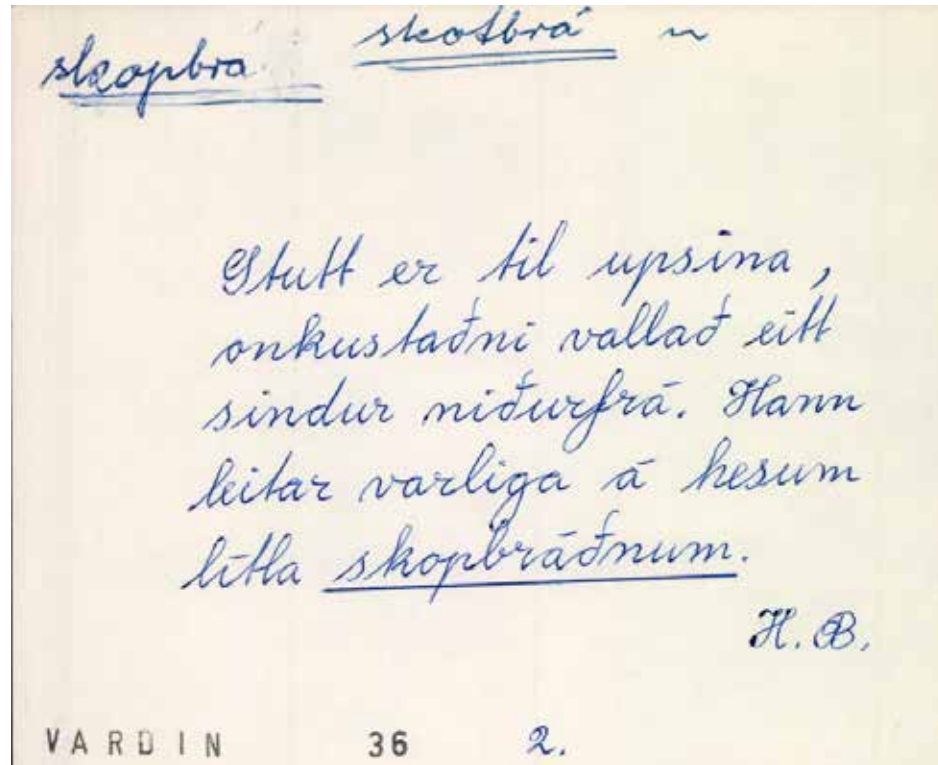 skopbra skotbrá n
Stutt er til upsina,
onkustaðni vallað eitt
sindur niðurfrá. Hann
leitar varliga á hesum
lítla skopbráðnum.
H. B.
VARDIN 36 2.